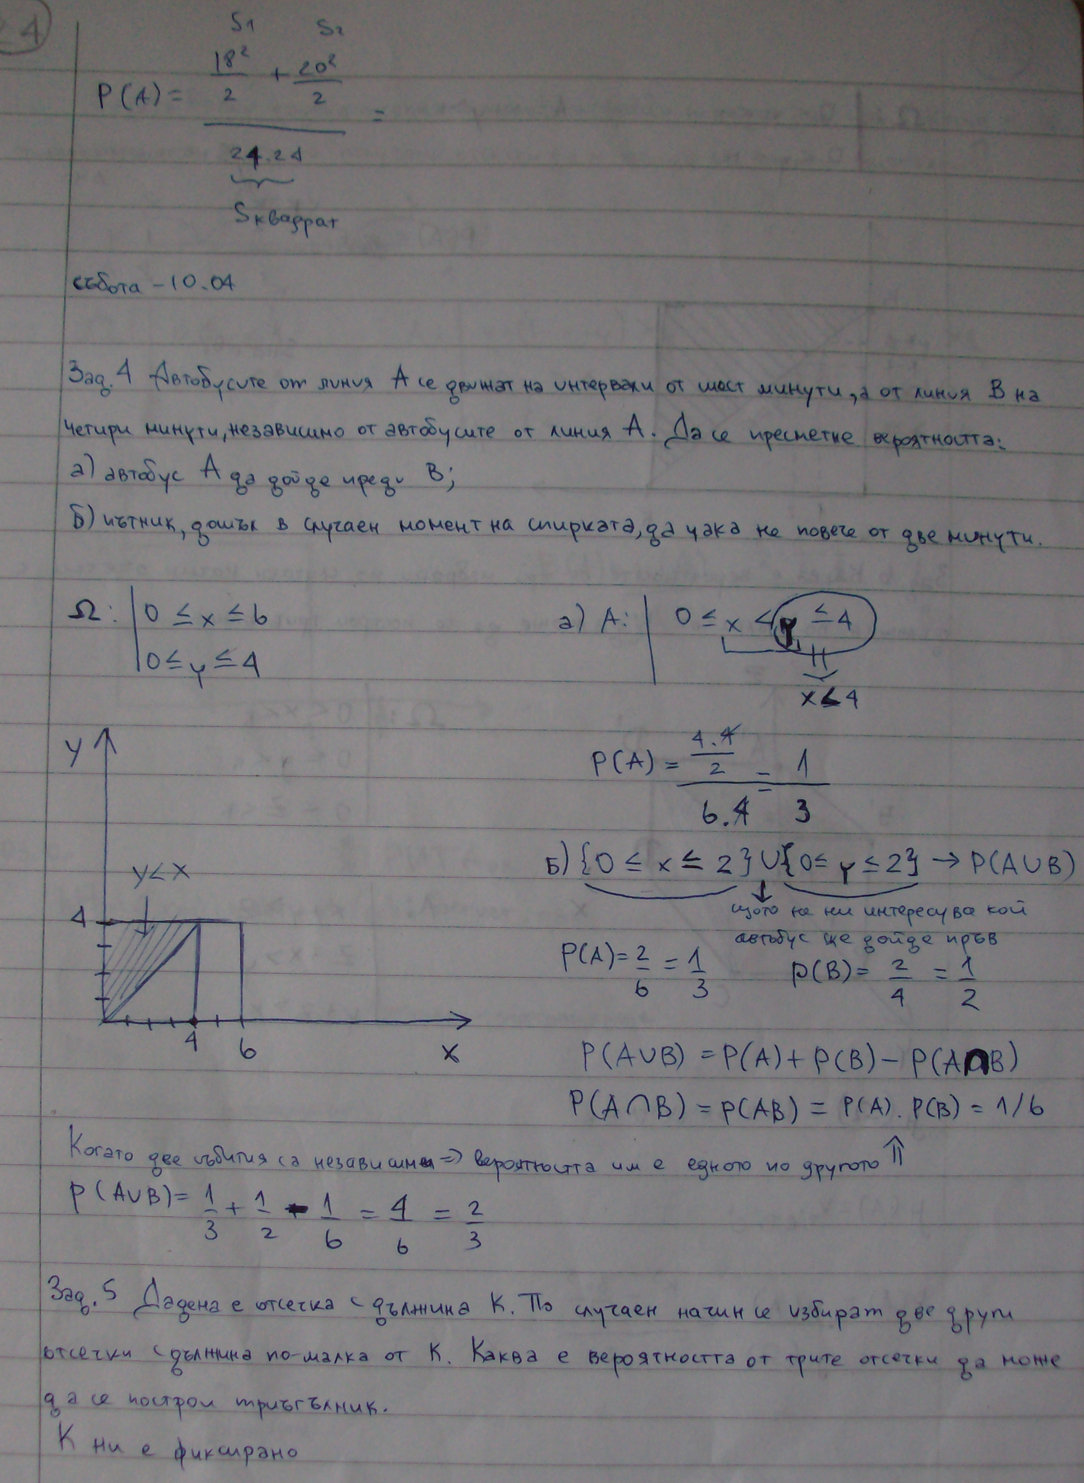 S₁ S₂
P(A) = (18²/2 + 20²/2) / 24.24 =
Sквадрат
събота – 10.04
Зад. 4 Автобусите от линия A се движат на интервали от шест минути, а от линия B на
четири минути, независимо от автобусите от линия A. Да се пресметне вероятността:
а) автобус A да дойде преди B;
б) пътник, дошъл в случаен момент на спирката, да чака не повече от две минути.
Ω: | 0 ≤ x ≤ 6
0 ≤ y ≤ 4
а) A: | 0 ≤ x < y ≤ 4
⇓
x ≤ 4
P(A) = (4.4/2) / 6.4 = 1/3
y
y < x
4
4 6 x
Б) {0 ≤ x ≤ 2} ∪ {0 ≤ y ≤ 2} → P(A∪B)
щото не ни интересува кой
автобус ще дойде пръв
P(A) = 2/6 = 1/3 P(B) = 2/4 = 1/2
P(A∪B) = P(A) + P(B) – P(A∩B)
P(A∩B) = P(AB) = P(A) . P(B) = 1/6
Когато две събития са независими => вероятността им е едното по другото ⇑
P(A∪B) = 1/3 + 1/2 - 1/6 = 4/6 = 2/3
Зад. 5 Дадена е отсечка с дължина K. По случаен начин се избират две други
отсечки с дължина по-малка от K. Каква е вероятността от трите отсечки да може
да се построи триъгълник.
K ни е фиксирано